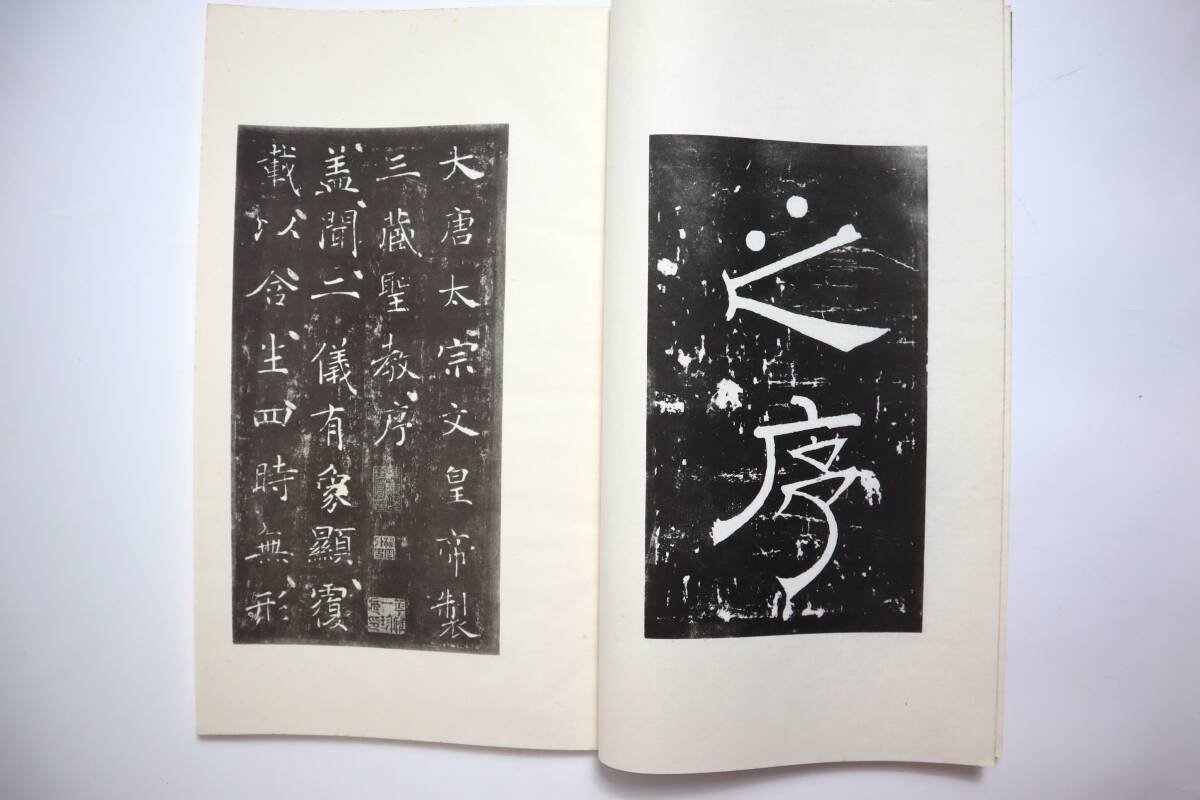 之序
大唐太宗文皇帝製
三藏聖教序
盖聞二儀有象顯覆
載以含生四時無形